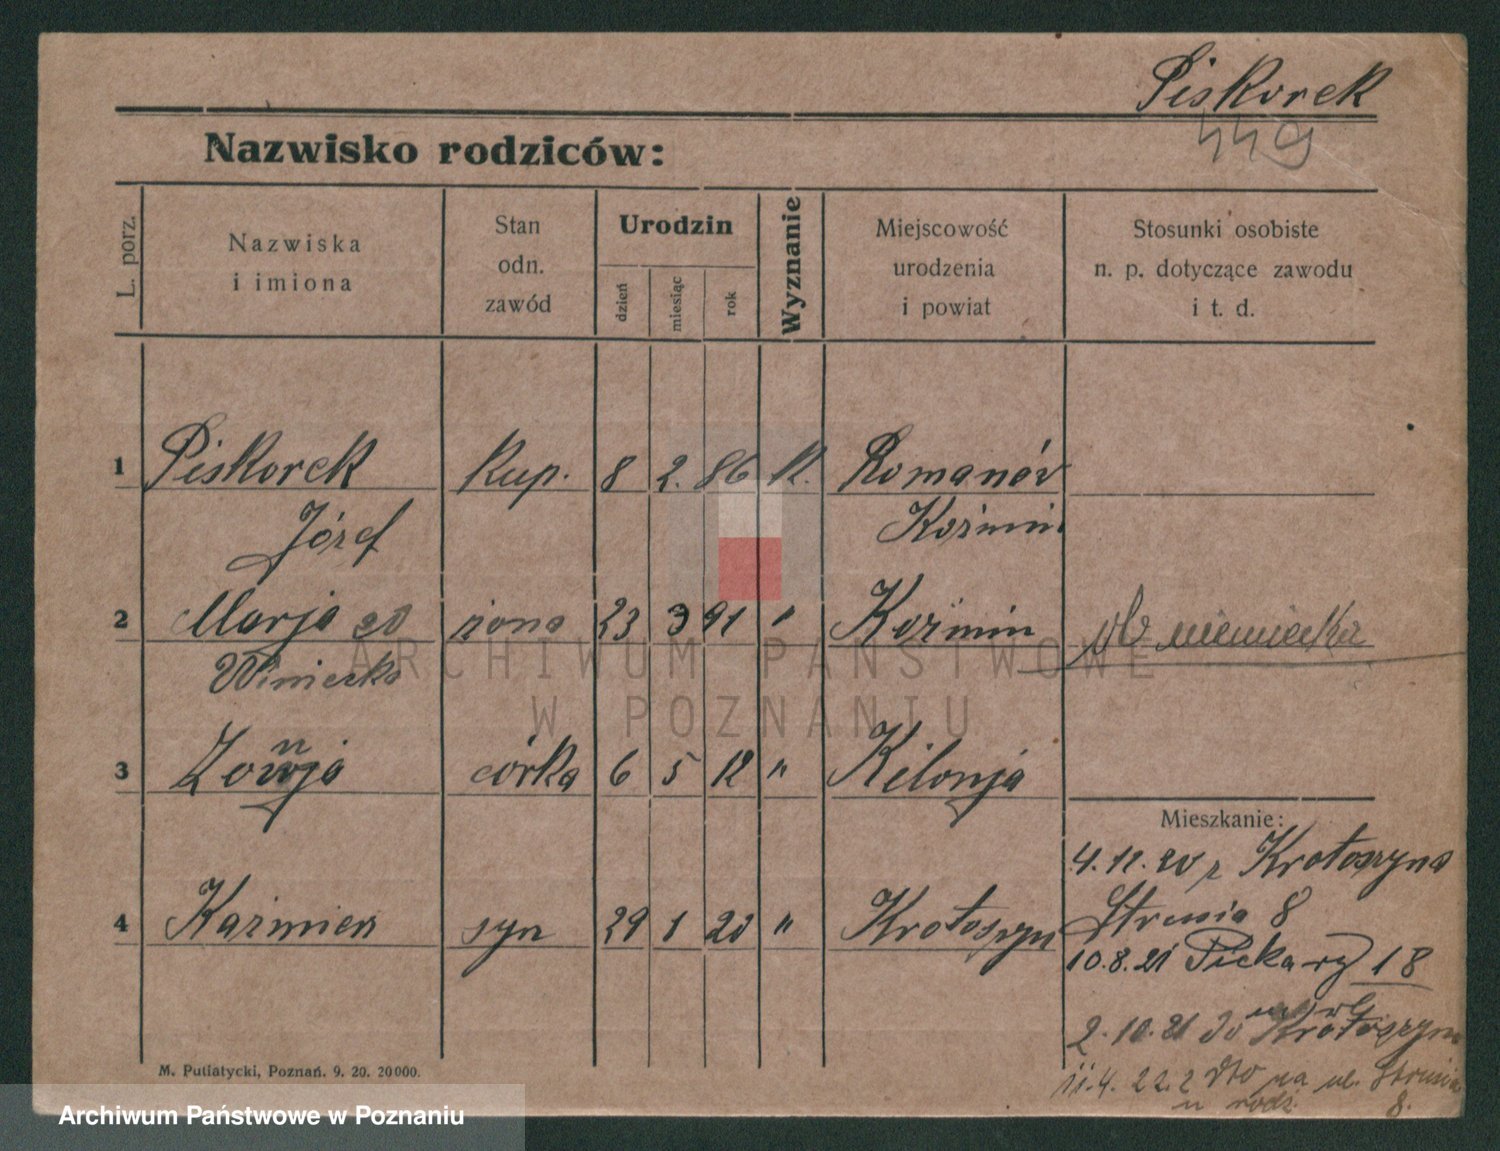 Piskorek
449
Nazwisko rodziców:
L. porz.
Nazwiska
i imiona
Stan
odn.
zawód
Urodzin
dzień
miesiąc
rok
Wyznanie
Miejscowość
urodzenia
i powiat
Stosunki osobiste
n. p. dotyczące zawodu
i t. d.
1 Piskorek kup. 8 2. 86 K. Romanów
Józef Koźmin
2 Marja zd żona 23 3 91 " Koźmin ob niemiecka
Winiecka
3 córka 6 5 12 " Kilonja
Mieszkanie:
4 Kaźmierz syn 29 1 20 " Krotoszyn
4.12.20 z Krotoszyna
Strusia 8
10.8.21 Piekary 18
2.10.21 do Krotoszyna
11.4.22 z dto na ul. Strusia
u rodz. 8.
M. Putiatycki, Poznań. 9. 20. 20000.
ARCHIWUM PAŃSTWOWE
W POZNANIU
Archiwum Państwowe w Poznaniu